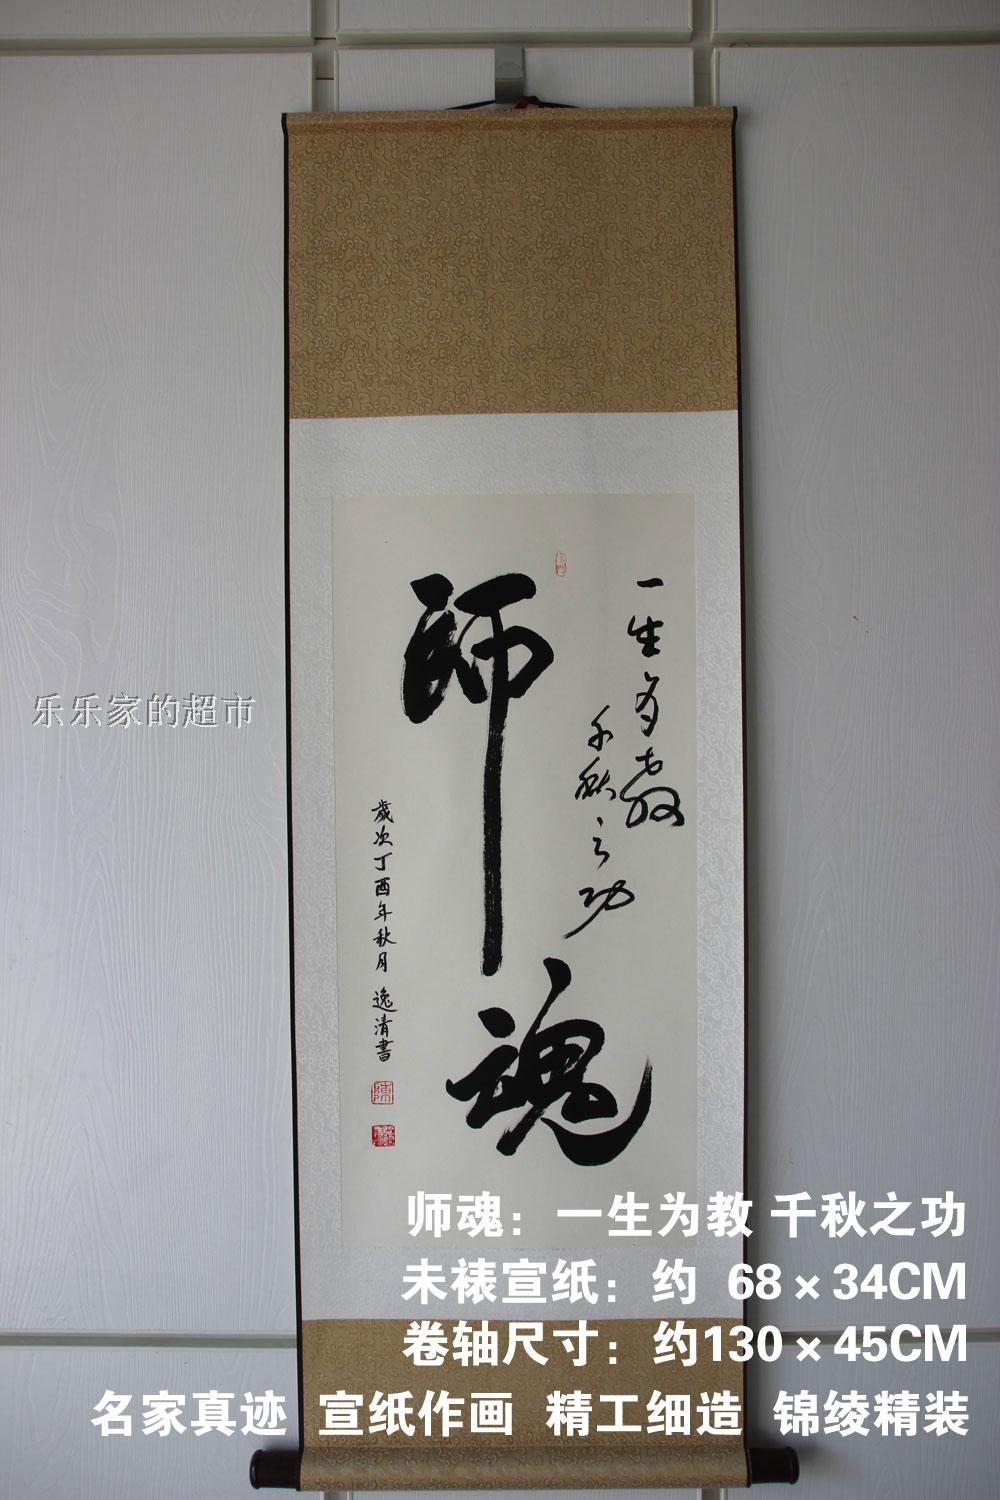 一生为教
千秋之功
師
魂
歲次丁酉年秋月 逸清書
陳
乐乐家的超市
师魂：一生为教 千秋之功
未裱宣纸：约 68×34CM
卷轴尺寸：约130×45CM
名家真迹 宣纸作画 精工细造 锦绫精装